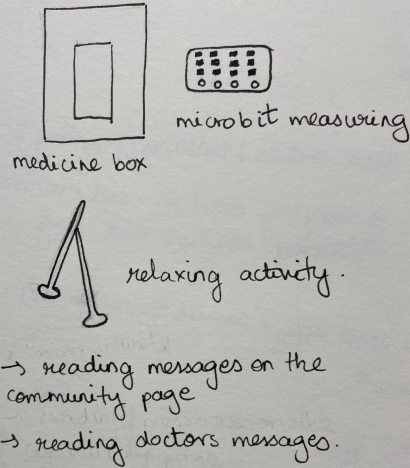 microbit measuring
medicine box
relaxing activity.
→ reading messages on the
community page
→ reading doctors messages.